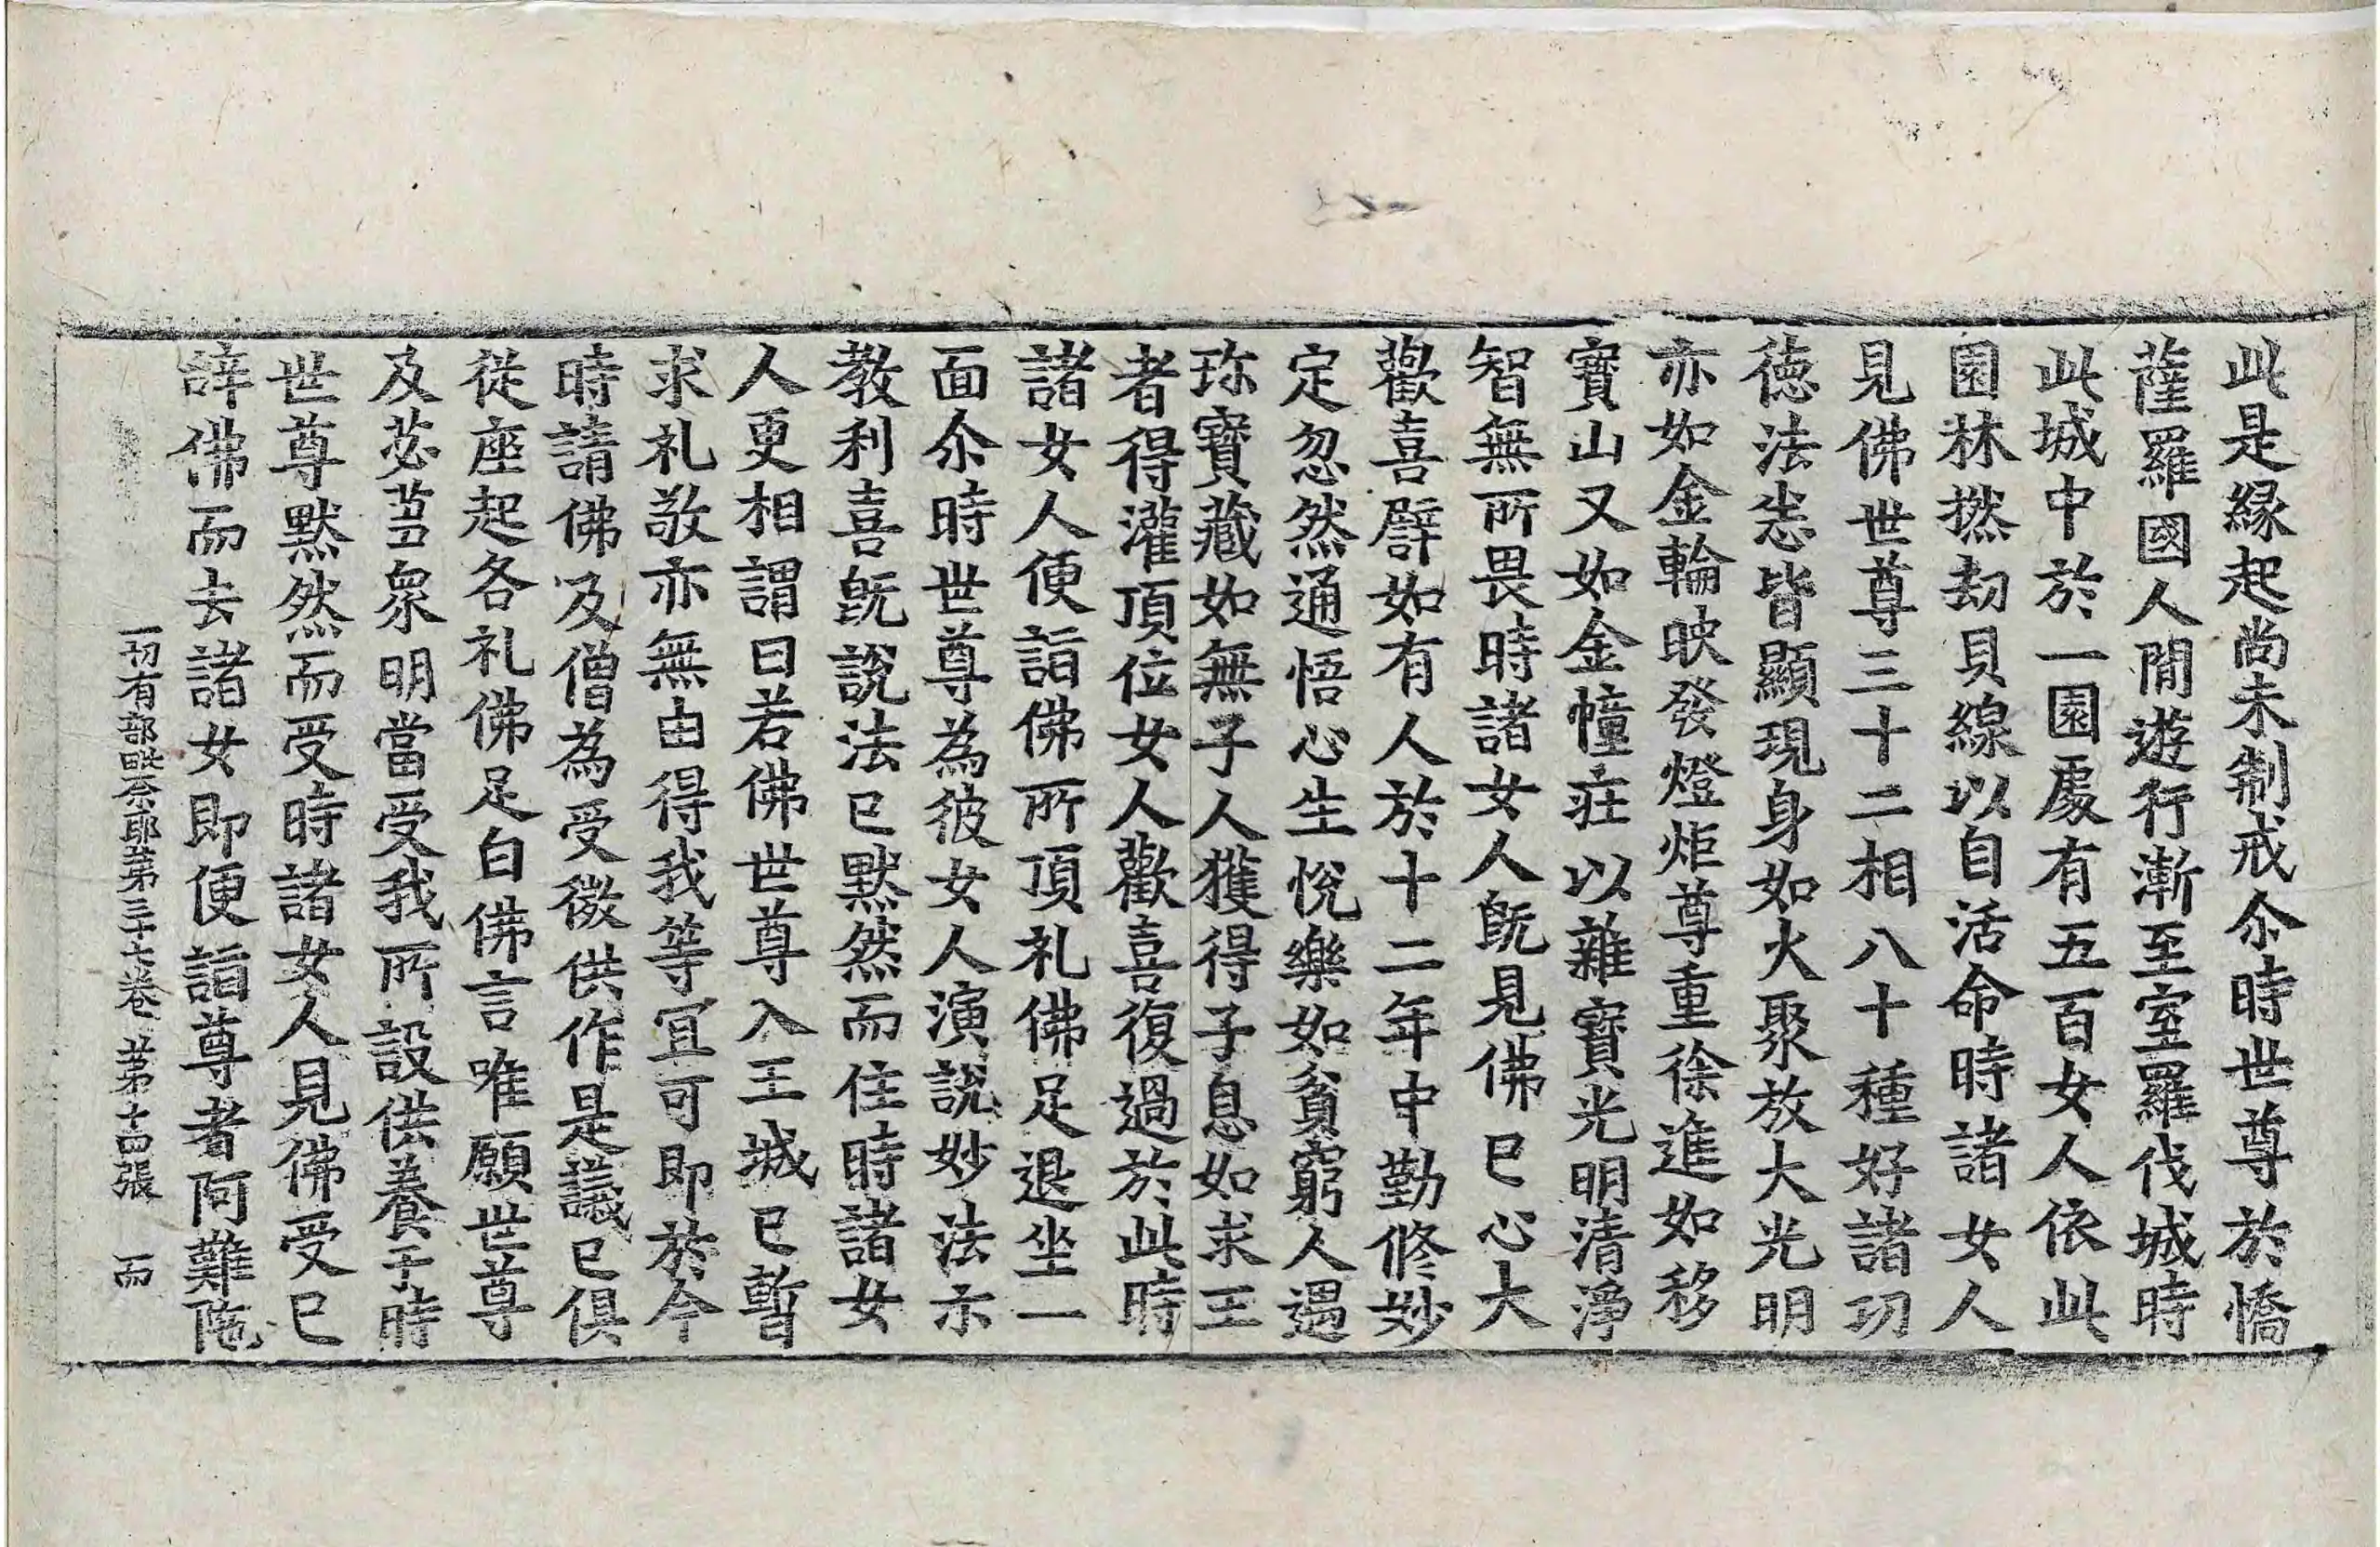 此是縁起尚未制戒尒時世尊於憍
薩羅國人間遊行漸至室羅伐城時
此城中於一園處有五百女人依此
園林撚劫貝線以自活命時諸女人
見佛世尊三十二相八十種好諸功
徳法悉皆顯現身如火聚放大光明
亦如金輪映發燈炬尊重徐進如移
寶山又如金幢莊以雜寶光明清淨
智無所畏時諸女人旣見佛已心大
歡喜譬如有人於十二年中勤修妙
定忽然通悟心生悅樂如貧窮人遇
珎寶藏如無子人獲得子息如求王
者得灌頂位女人歡喜復過於此時
諸女人便詣佛所頂礼佛足退坐一
面尒時世尊為彼女人演說妙法示
教利喜旣說法已默然而住時諸女
人更相謂曰若佛世尊入王城已暫
求礼敬亦無由得我等冝可即於今
時請佛及僧為受微供作是議已俱
從座起各礼佛足白佛言唯願世尊
及苾芻衆明當受我所設供養于時
世尊默然而受時諸女人見佛受已
辝佛而去諸女即便詣尊者阿難陁
一切有部毗奈耶第三十七卷 第十四張 而